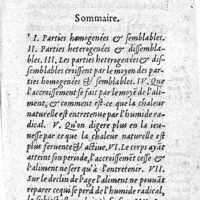 Sommaire.
I. Parties homogenées & semblables.
II. Parties heterogenées & dissembla-
bles. III. Les parties heterogenées & dis-
semblables croissent par le moyen des par-
ties homogenées & semblables. IV. Que
l'accroissement se fait par le moyẽ de l'ali-
ment, & comment est-ce que la chaleur
naturelle est entretenue par l'humide ra-
dical. V. Qu'on digere plus en la jeu-
nesse par ce que la chaleur naturelle est
plus feruente & actiue. VI. Le corps ayãt
attent son periode, l'accroissemẽt cesse &
l'aliment ne sert qu'à l'entretenir. VII.
Sur le declin de l'age l'aliment ne pouuãt
reparer ce qui se perd de l'humide radical,